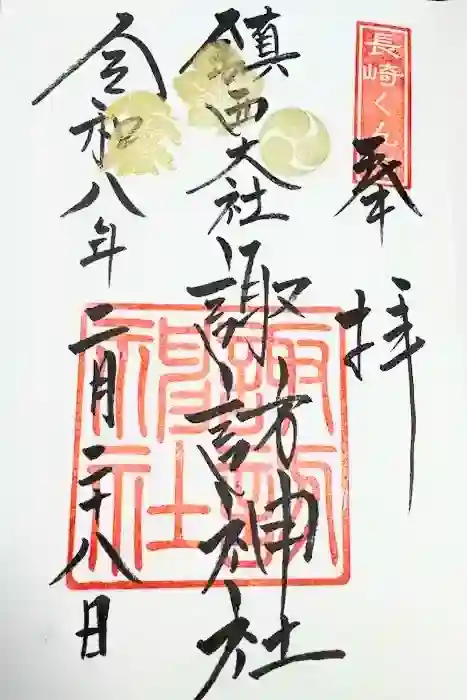 長崎くんち
奉拝
鎮西大社 諏訪神社
諏訪神社
令和八年二月二十八日